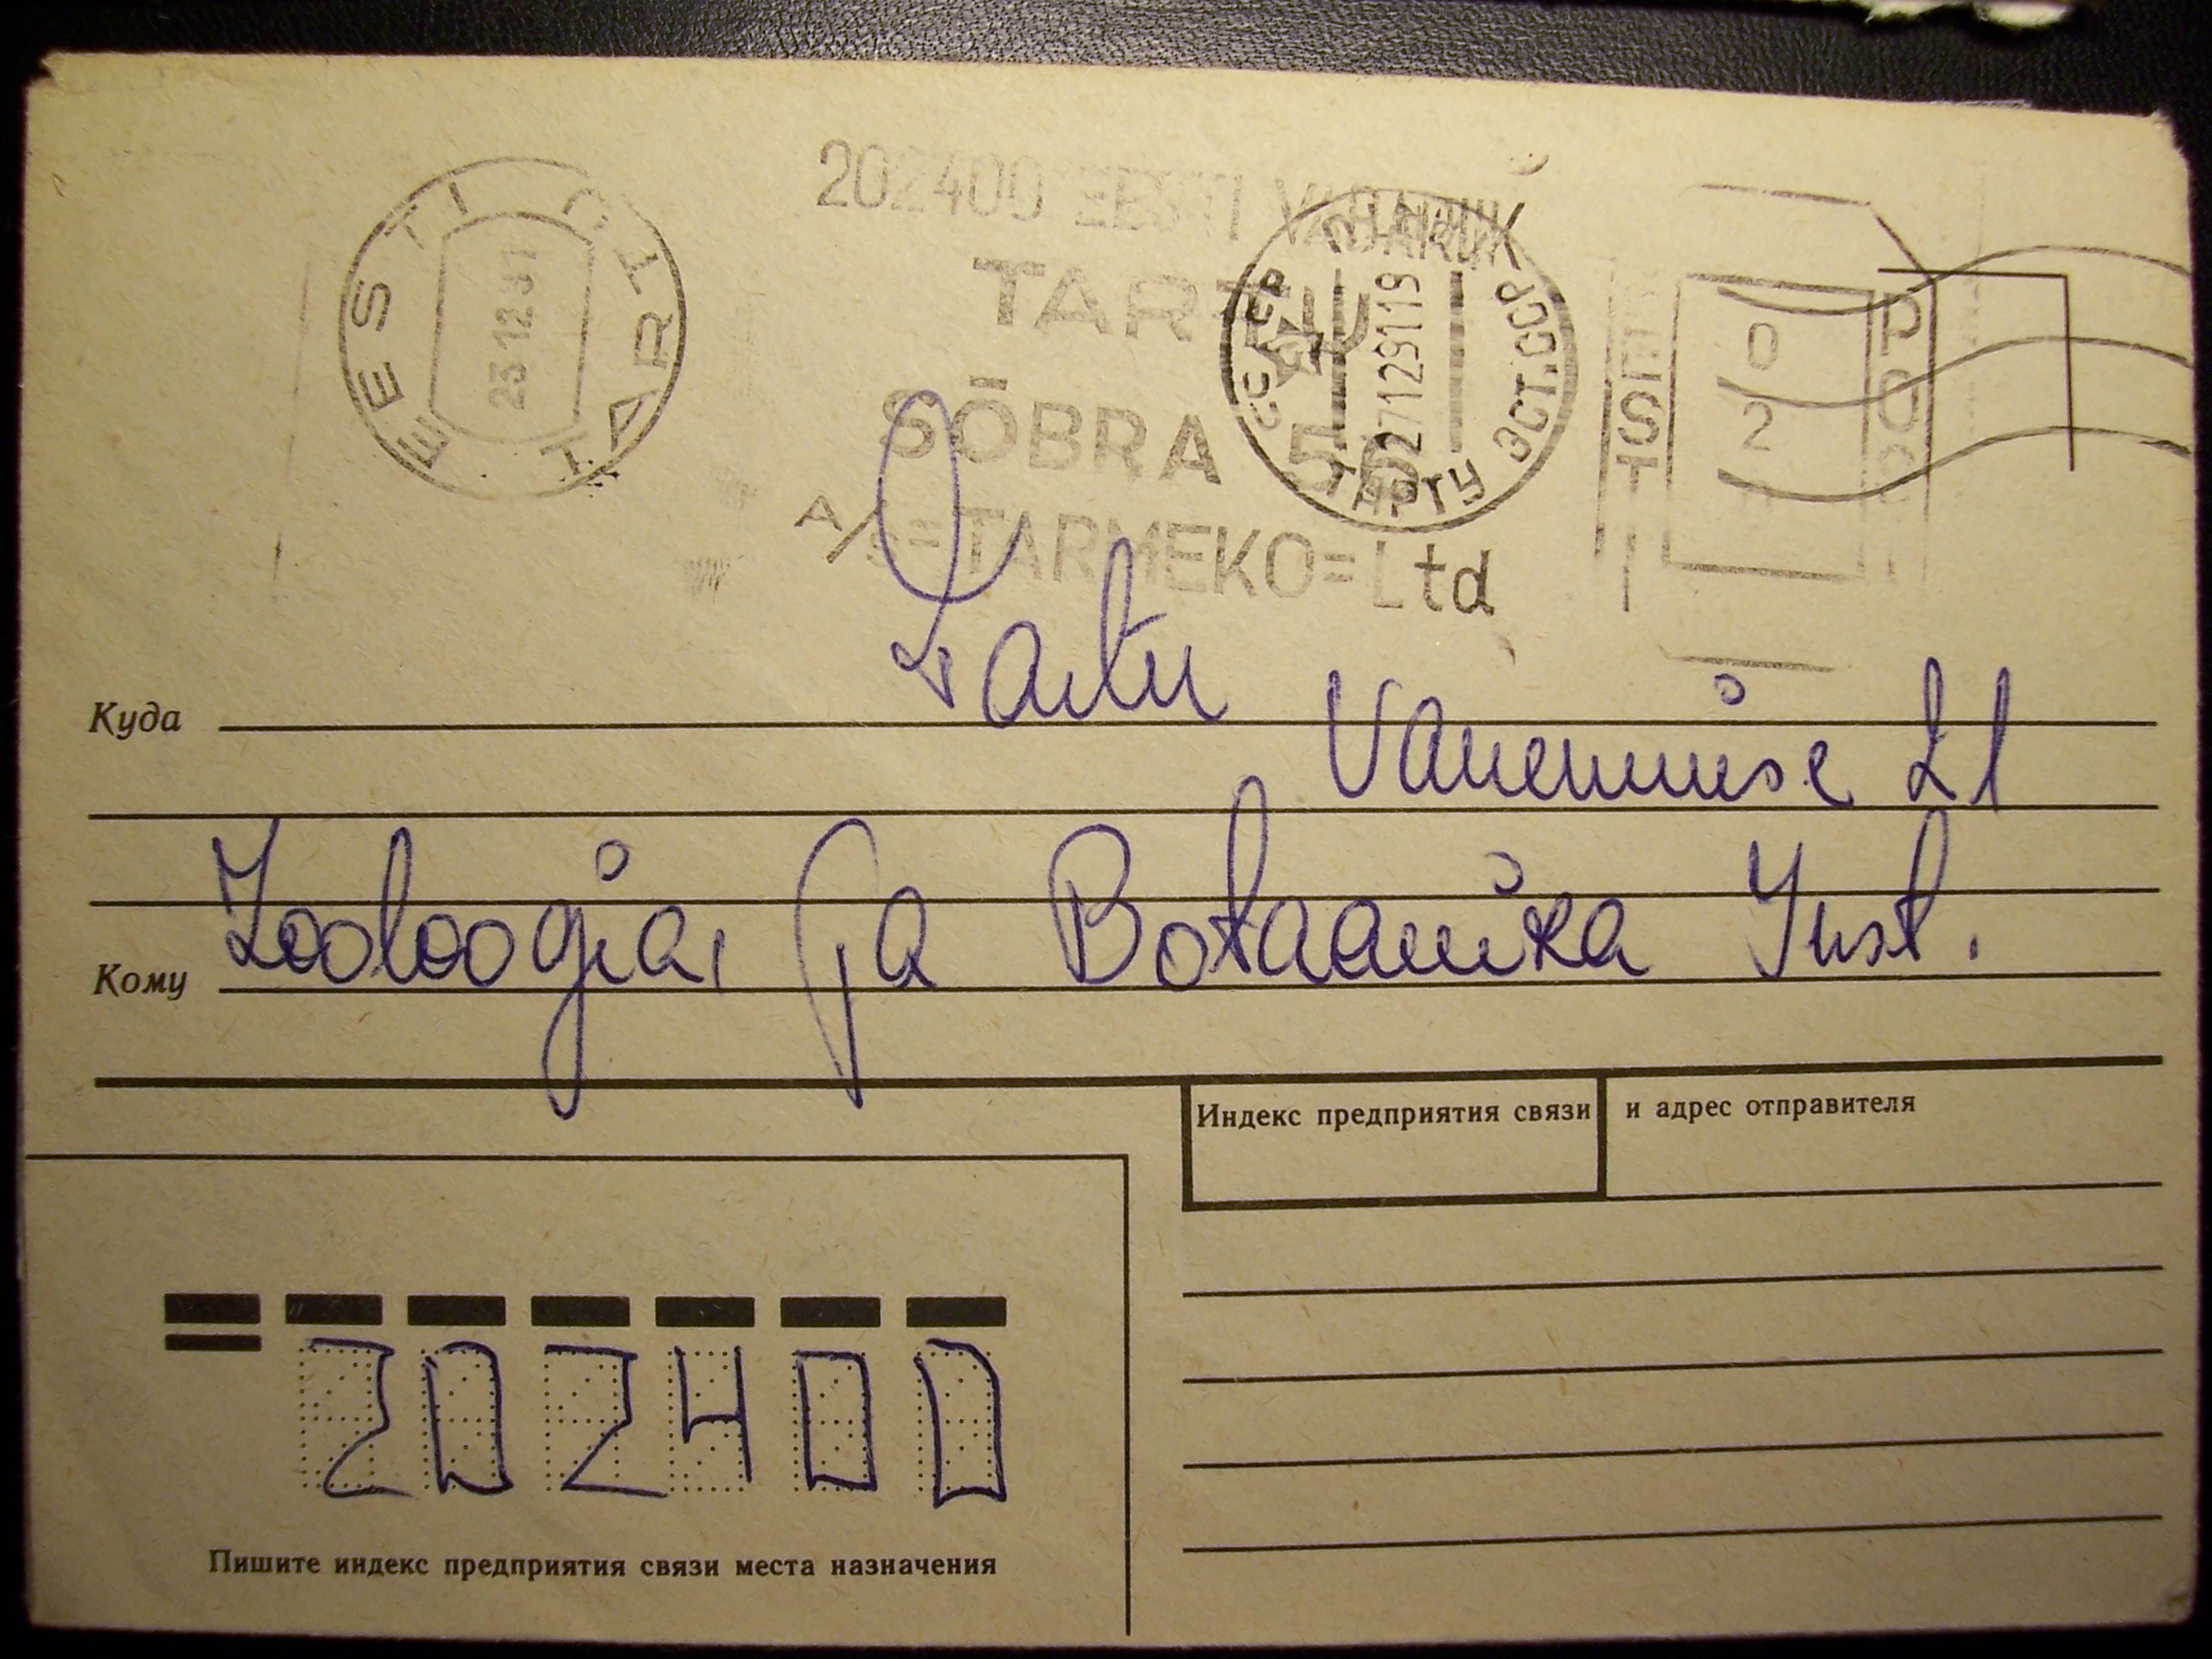 EESTI TARTU
23 12 91
202400 EESTI VABARIIK
TARTU
SÕBRA 56
A/S =TARMEKO= Ltd
СССР ТАРТУ ЭСТ.ССР
2712291119
EESTI
0
2
POST
Tartu
Куда
Vanemuise 21
Zooloogia, ja Botaanika Inst.
Кому
Индекс предприятия связи и адрес отправителя
202400
Пишите индекс предприятия связи места назначения